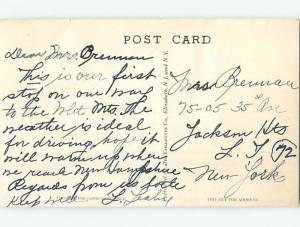 POST CARD
Dear Mrs. Brennan
This is our first
stop on our way
to the Wht Mts. The
weather is ideal
for driving, hope it
will warm up when
we reach New Hampshire
Regards from us both
Keep well L. Leahy
Mrs. Brennan
75-05 35 Ave
Jackson Hts
L. I. 72
New York
THIS SIDE FOR ADDRESS